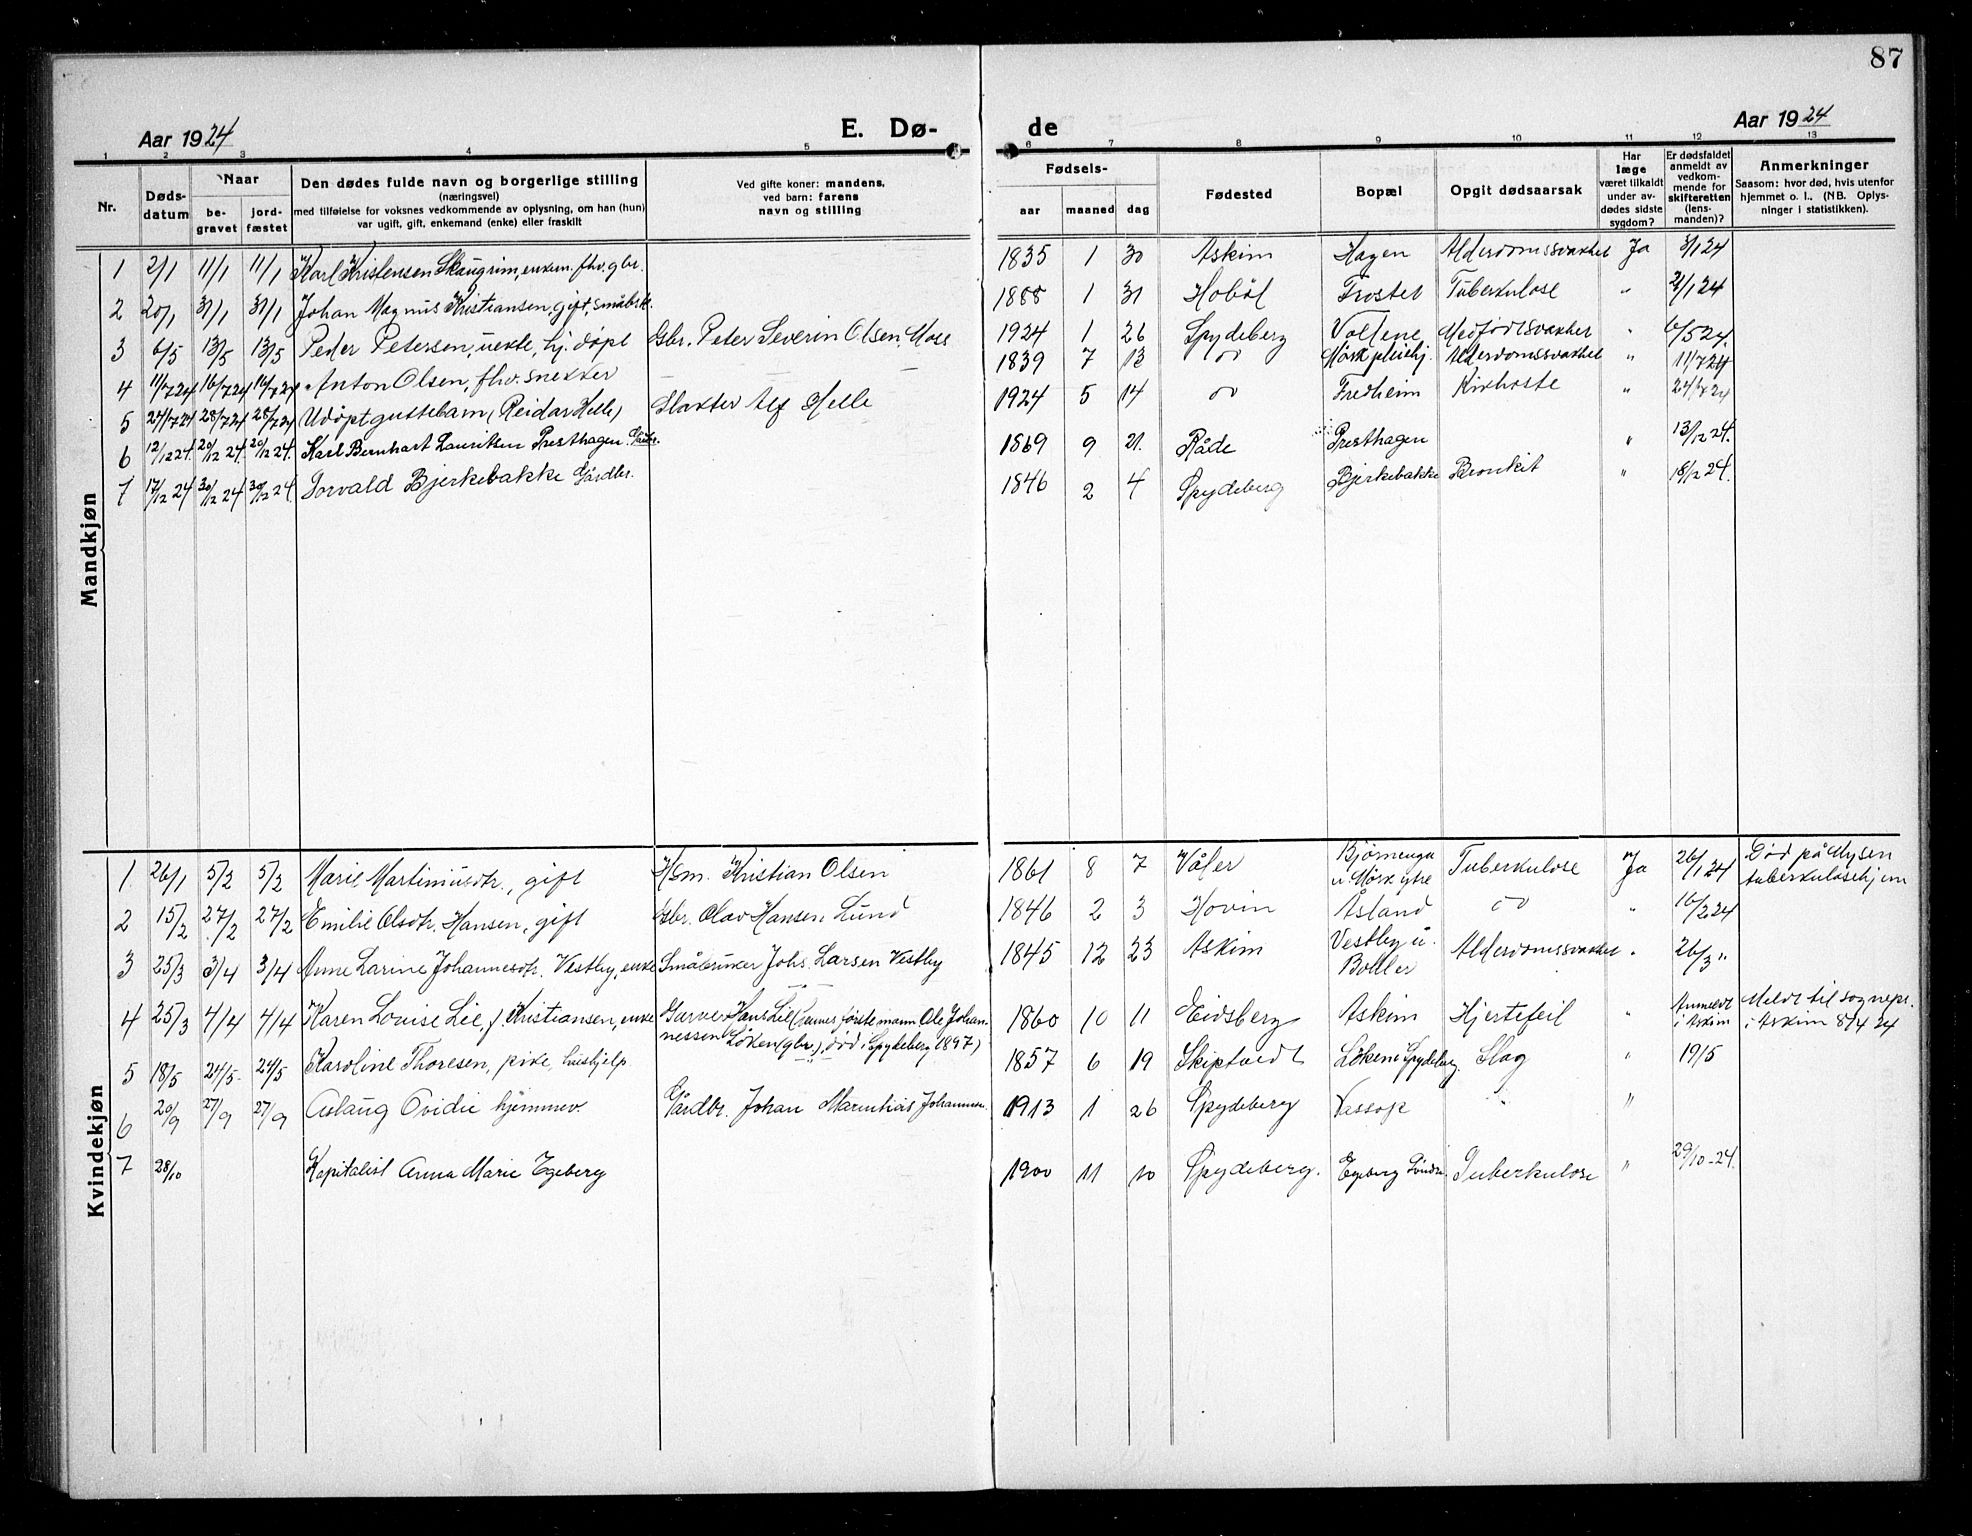 87
Aar 1924
E. Dø-
de
Aar 1924
1 2 3 4 5 6 7 8 9 10 11 12 13
Nr.
Døds-
datum
Naar
be-
gravet
jord-
fæstet
Den dødes fulde navn og borgerlige stilling
(næringsvei)
med tilføielse for voksnes vedkommende av oplysning, om han (hun)
var ugift, gift, enkemand (enke) eller fraskilt
Ved gifte koner: mandens,
ved barn: farens
navn og stilling
Fødsels-
aar maaned dag
Fødested
Bopæl
Opgit dødsaarsak
Har
læge
været tilkaldt
under av-
dødes sidste
sygdom?
Er dødsfaldet
anmeldt av
vedkom-
mende for
skifteretten
(lens-
manden)?
Anmerkninger
Saasom: hvor død, hvis utenfor
hjemmet o. l.. (NB. Oplys-
ninger i statistikken).
Mandkjøn
1 2/1 11/1 11/1 Karl Kristensen Skaugrim, enkem. fhv. gbr. 1835 1 30 Askim Hagen Alderdomssvakhet Ja 3/1 24
2 20/1 31/1 31/1 Johan Magnus Kristiansen, gift, småbrk. 1888 1 31 Hobøl Frostet Tuberkulose " 21/1 24
3 6/5 13/5 13/5 Peder Petersen, uekte, hj. døpt Gbr. Peter Severin Olsen, Moss 1924 1 26 Spydeberg Vollene Medfødt svakhet " 6/5 24.
4 11/7 24 16/7 24 16/7 24 Anton Olsen, fhv. snekker — — 1839 7 13 do Mørk pleiehj. Alderdomssvakhet " 11/7 24
5 24/7 24 28/7 24 28/7 24 Udøpt guttebarn (Reidar Helle) Slakter Alf Helle 1924 5 14 do Fredheim Kikhoste "
6 12/12 24. 20/12 24. 20/12 24. Karl Bernhart Lauritsen Presthagen. Gårdbr. 1869 9 21. Råde Presthagen " 13/12 24.
7 17/12 24 30/12 24 30/12 24. Torvald Bjerkebakke Gårdbr. 1846 2 4 Spydeberg Bjerkebakke Bronkit " 18/12 24.
Kvindekjøn
1. 26/1 5/2 5/2 Marie Martinusdtr., gift Hsm. Kristian Olsen 1861 8 7 Våler Bjørnenga
u. Mørk ytre Tuberkulose Ja 26/1 24 Død på Mysen
tuberkulosehjem
2 15/2 27/2 27/2 Emilie Olsdtr. Hansen, gift Gbr. Olav Hansen Lund 1846 2 3 Hovin Åsland do " 16/2 24
3 25/3 3/4 3/4 Anne Larine Johannesdtr. Vestby, enke Småbruker Johs. Larsen Vestby 1845 12 23 Askim Vestby u.
Boller Alderdomssvakhet " 26/3 "
4 25/3 4/4 4/4 Karen Lovise Lie, f. Kristiansen, enke Garver Hans Lie (hennes første mann Ole Johan-
nessen Løken (gbr.), død i Spydeberg 1897) 1860 10 11 Eidsberg Askim Hjertefeil " Anmeldt
i Askim Meldt til sognepr.
i Askim 8/4 24
5 18/5 24/5 24/5 Karoline Thoresen, pike, hushjelp 1857 6 19 Skiptvedt Løken i Spydeberg Slag " 19/5
6 20/9 27/9 27/9 Aslaug Ovidie hjemmev. Gårdbr. Johan Marenhias Johannsen. 1913 1 26 Spydeberg " "
7 28/10 Kapitalist Anna Marie Egeberg 1900 11 10 Spydeberg. Egeberg Søndre Tuberkulose " 29/10-24.